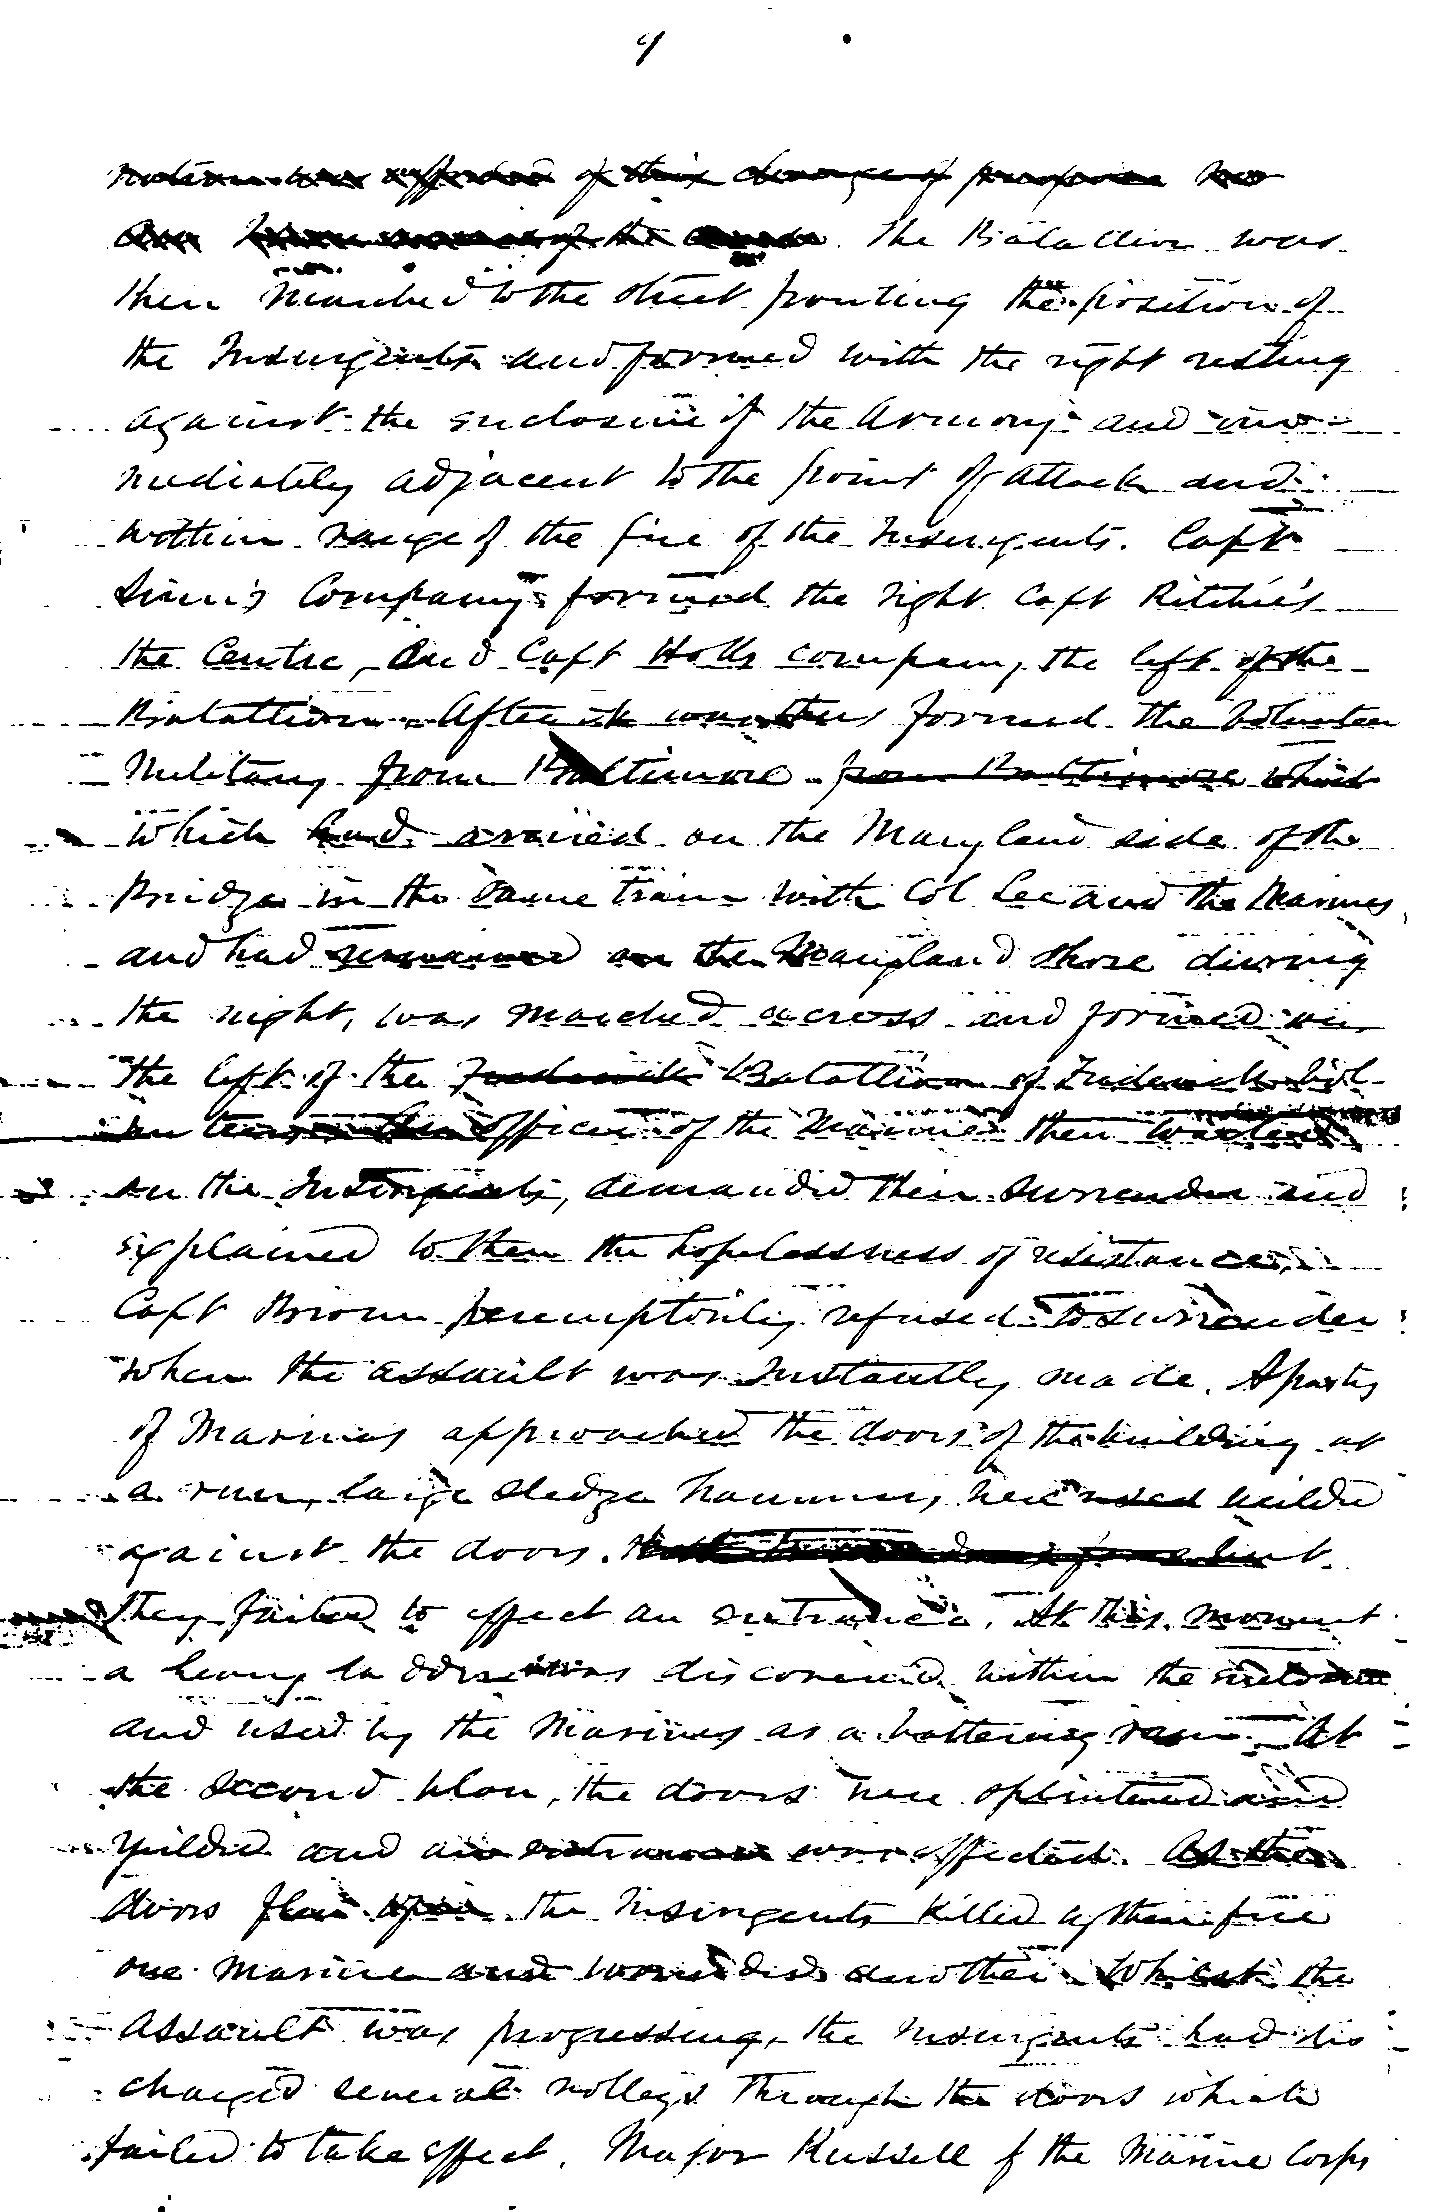 9
notice was afforded of this change of purpose
of the The Batallion was
then marched to the street fronting the position of
the Insurgents and formed with the right resting
against the enclosure of the Armory and im-
mediately adjacent to the point of attack and
within range of the fire of the Insurgents. Capt
Sinn's Company formed the right Capt Ritchie's
the Centre, and Capt Holls company, the left of the
Batallion. After it was thus formed the Volunteer
Military from Baltimore from Baltimore which
which had arrived on the Maryland side of the
Bridge in the same train with Col Lee and the Marines,
and had remained on the Maryland shore during
the night, was marched across and formed on
the left of the Frederick Batallion of Frederick Vol-
unteers. An officer of the Marines then waited
on the Insurgents, demanded their surrender and
explained to them the hopelessness of resistance.
Capt Brown peremptorily refused to surrender
when the assault was instantly made. A party
of Marines approached the doors of the building at
a run, large sledge hammers, were used wielded
against the doors. but
they failed to effect an entrance. At this moment
a heavy ladder was discovered within the enclosure
and used by the Marines as a battering ram. At
the second blow, the doors were splintered and
yielded and an entrance was effected. As the
doors flew open the Insurgents killed by their fire
one marine and wounded another. Whilst the
assault was progressing, the Insurgents had dis
charged several volleys through the doors which
failed to take effect. Major Russell of the Marine Corps